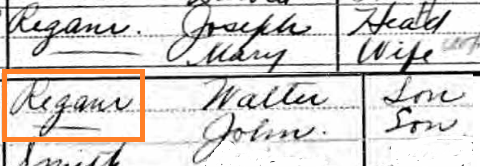 Regan. Joseph Head
Mary Wife
Regan Walter Son
John. Son
Smith